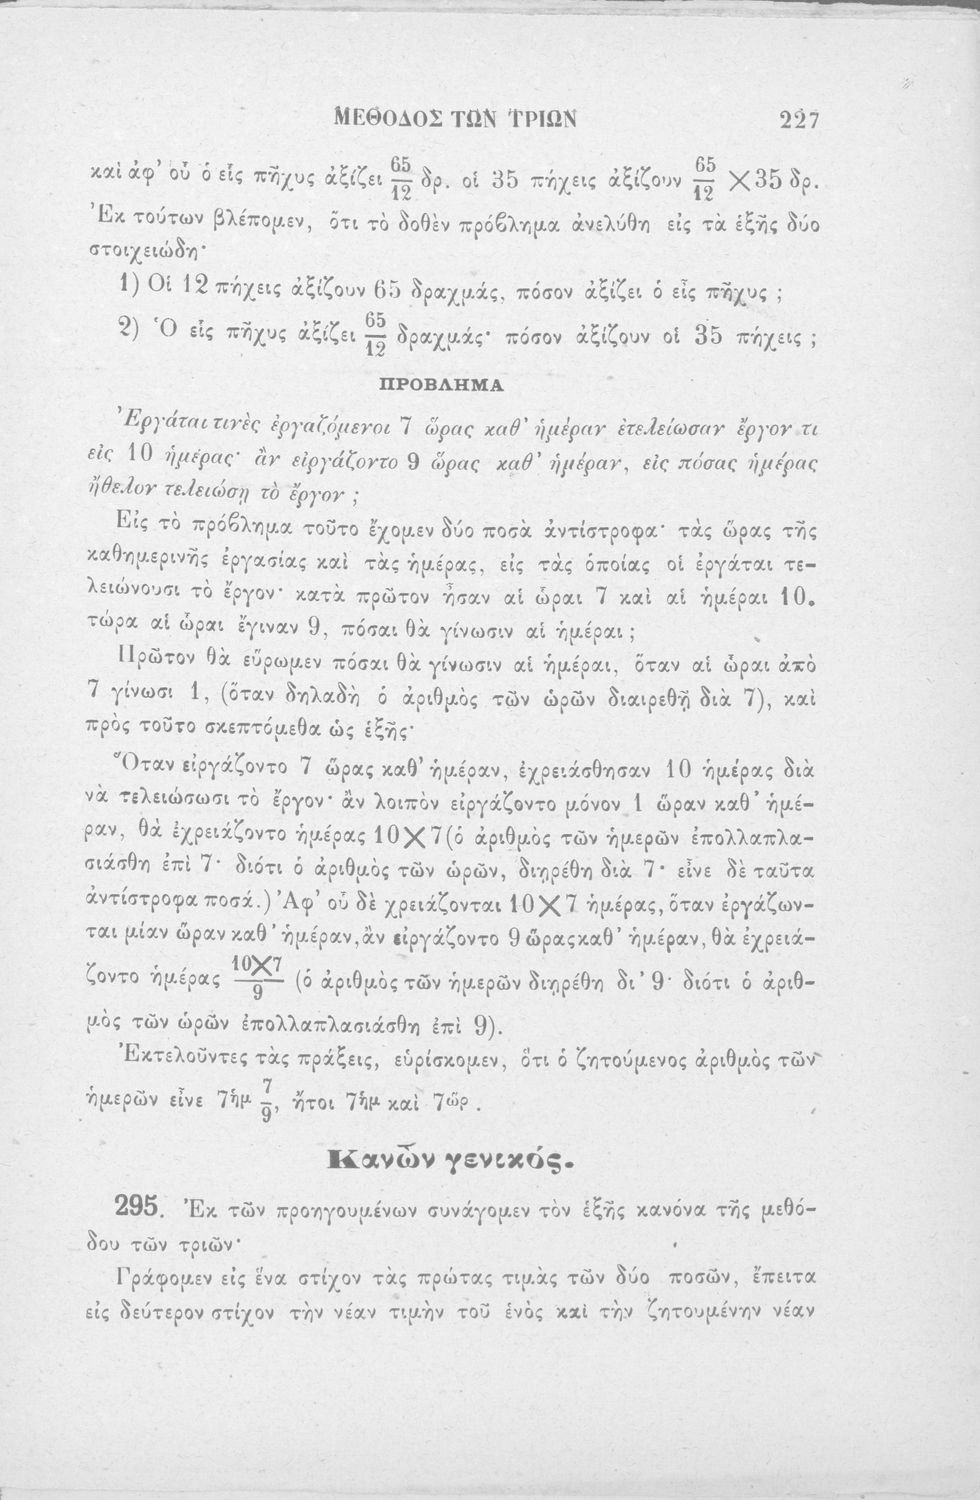 ΜΕΘΟΔΟΣ ΤΩΝ ΤΡΙΩΝ 227
καὶ ἀφ' οὗ ὁ εἷς πῆχυς ἀξίζει 65/12 δρ. οἱ 35 πήχεις ἀξίζουν 65/12 × 35 δρ.
Ἐκ τούτων βλέπομεν, ὅτι τὸ δοθὲν πρόβλημα ἀνελύθη εἰς τὰ ἑξῆς δύο
στοιχειώδη·
1) Οἱ 12 πήχεις ἀξίζουν 65 δραχμάς, πόσον ἀξίζει ὁ εἷς πῆχυς ;
2) Ὁ εἷς πῆχυς ἀξίζει 65/12 δραχμάς· πόσον ἀξίζουν οἱ 35 πήχεις ;
ΠΡΟΒΛΗΜΑ
Ἐργάται τινὲς ἐργαζόμενοι 7 ὥρας καθ' ἡμέραν ἐτελείωσαν ἔργον τι
εἰς 10 ἡμέρας· ἂν εἰργάζοντο 9 ὥρας καθ' ἡμέραν, εἰς πόσας ἡμέρας
ἤθελον τελειώσῃ τὸ ἔργον ;
Εἰς τὸ πρόβλημα τοῦτο ἔχομεν δύο ποσὰ ἀντίστροφα· τὰς ὥρας τῆς
καθημερινῆς ἐργασίας καὶ τὰς ἡμέρας, εἰς τὰς ὁποίας οἱ ἐργάται τε-
λειώνουσι τὸ ἔργον· κατὰ πρῶτον ἦσαν αἱ ὧραι 7 καὶ αἱ ἡμέραι 10.
τώρα αἱ ὧραι ἔγιναν 9, πόσαι θὰ γίνωσιν αἱ ἡμέραι ;
Πρῶτον θὰ εὕρωμεν πόσαι θὰ γίνωσιν αἱ ἡμέραι, ὅταν αἱ ὧραι ἀπὸ
7 γίνωσι 1, (ὅταν δηλαδὴ ὁ ἀριθμὸς τῶν ὡρῶν διαιρεθῇ διὰ 7), καὶ
πρὸς τοῦτο σκεπτόμεθα ὡς ἑξῆς·
Ὅταν εἰργάζοντο 7 ὥρας καθ' ἡμέραν, ἐχρειάσθησαν 10 ἡμέρας διὰ
νὰ τελειώσωσι τὸ ἔργον· ἂν λοιπὸν εἰργάζοντο μόνον 1 ὥραν καθ' ἡμέ-
ραν, θὰ ἐχρειάζοντο ἡμέρας 10×7(ὁ ἀριθμὸς τῶν ἡμερῶν ἐπολλαπλα-
σιάσθη ἐπὶ 7· διότι ὁ ἀριθμὸς τῶν ὡρῶν, διῃρέθη διὰ 7· εἶνε δὲ ταῦτα
ἀντίστροφα ποσά.) Ἀφ' οὗ δὲ χρειάζονται 10×7 ἡμέρας, ὅταν ἐργάζων-
ται μίαν ὥραν καθ' ἡμέραν, ἂν εἰργάζοντο 9 ὥρας καθ' ἡμέραν, θὰ ἐχρειά-
ζοντο ἡμέρας 10×7/9 (ὁ ἀριθμὸς τῶν ἡμερῶν διῃρέθη δι' 9· διότι ὁ ἀριθ-
μὸς τῶν ὡρῶν ἐπολλαπλασιάσθη ἐπὶ 9).
Ἐκτελοῦντες τὰς πράξεις, εὑρίσκομεν, ὅτι ὁ ζητούμενος ἀριθμὸς τῶν
ἡμερῶν εἶνε 7ἡμ 7/9, ἤτοι 7ἡμ καὶ 7ὥρ .
Κανὼν γενικός.
295. Ἐκ τῶν προηγουμένων συνάγομεν τὸν ἑξῆς κανόνα τῆς μεθό-
δου τῶν τριῶν·
Γράφομεν εἰς ἕνα στίχον τὰς πρώτας τιμὰς τῶν δύο ποσῶν, ἔπειτα
εἰς δεύτερον στίχον τὴν νέαν τιμὴν τοῦ ἑνὸς καὶ τὴν ζητουμένην νέαν